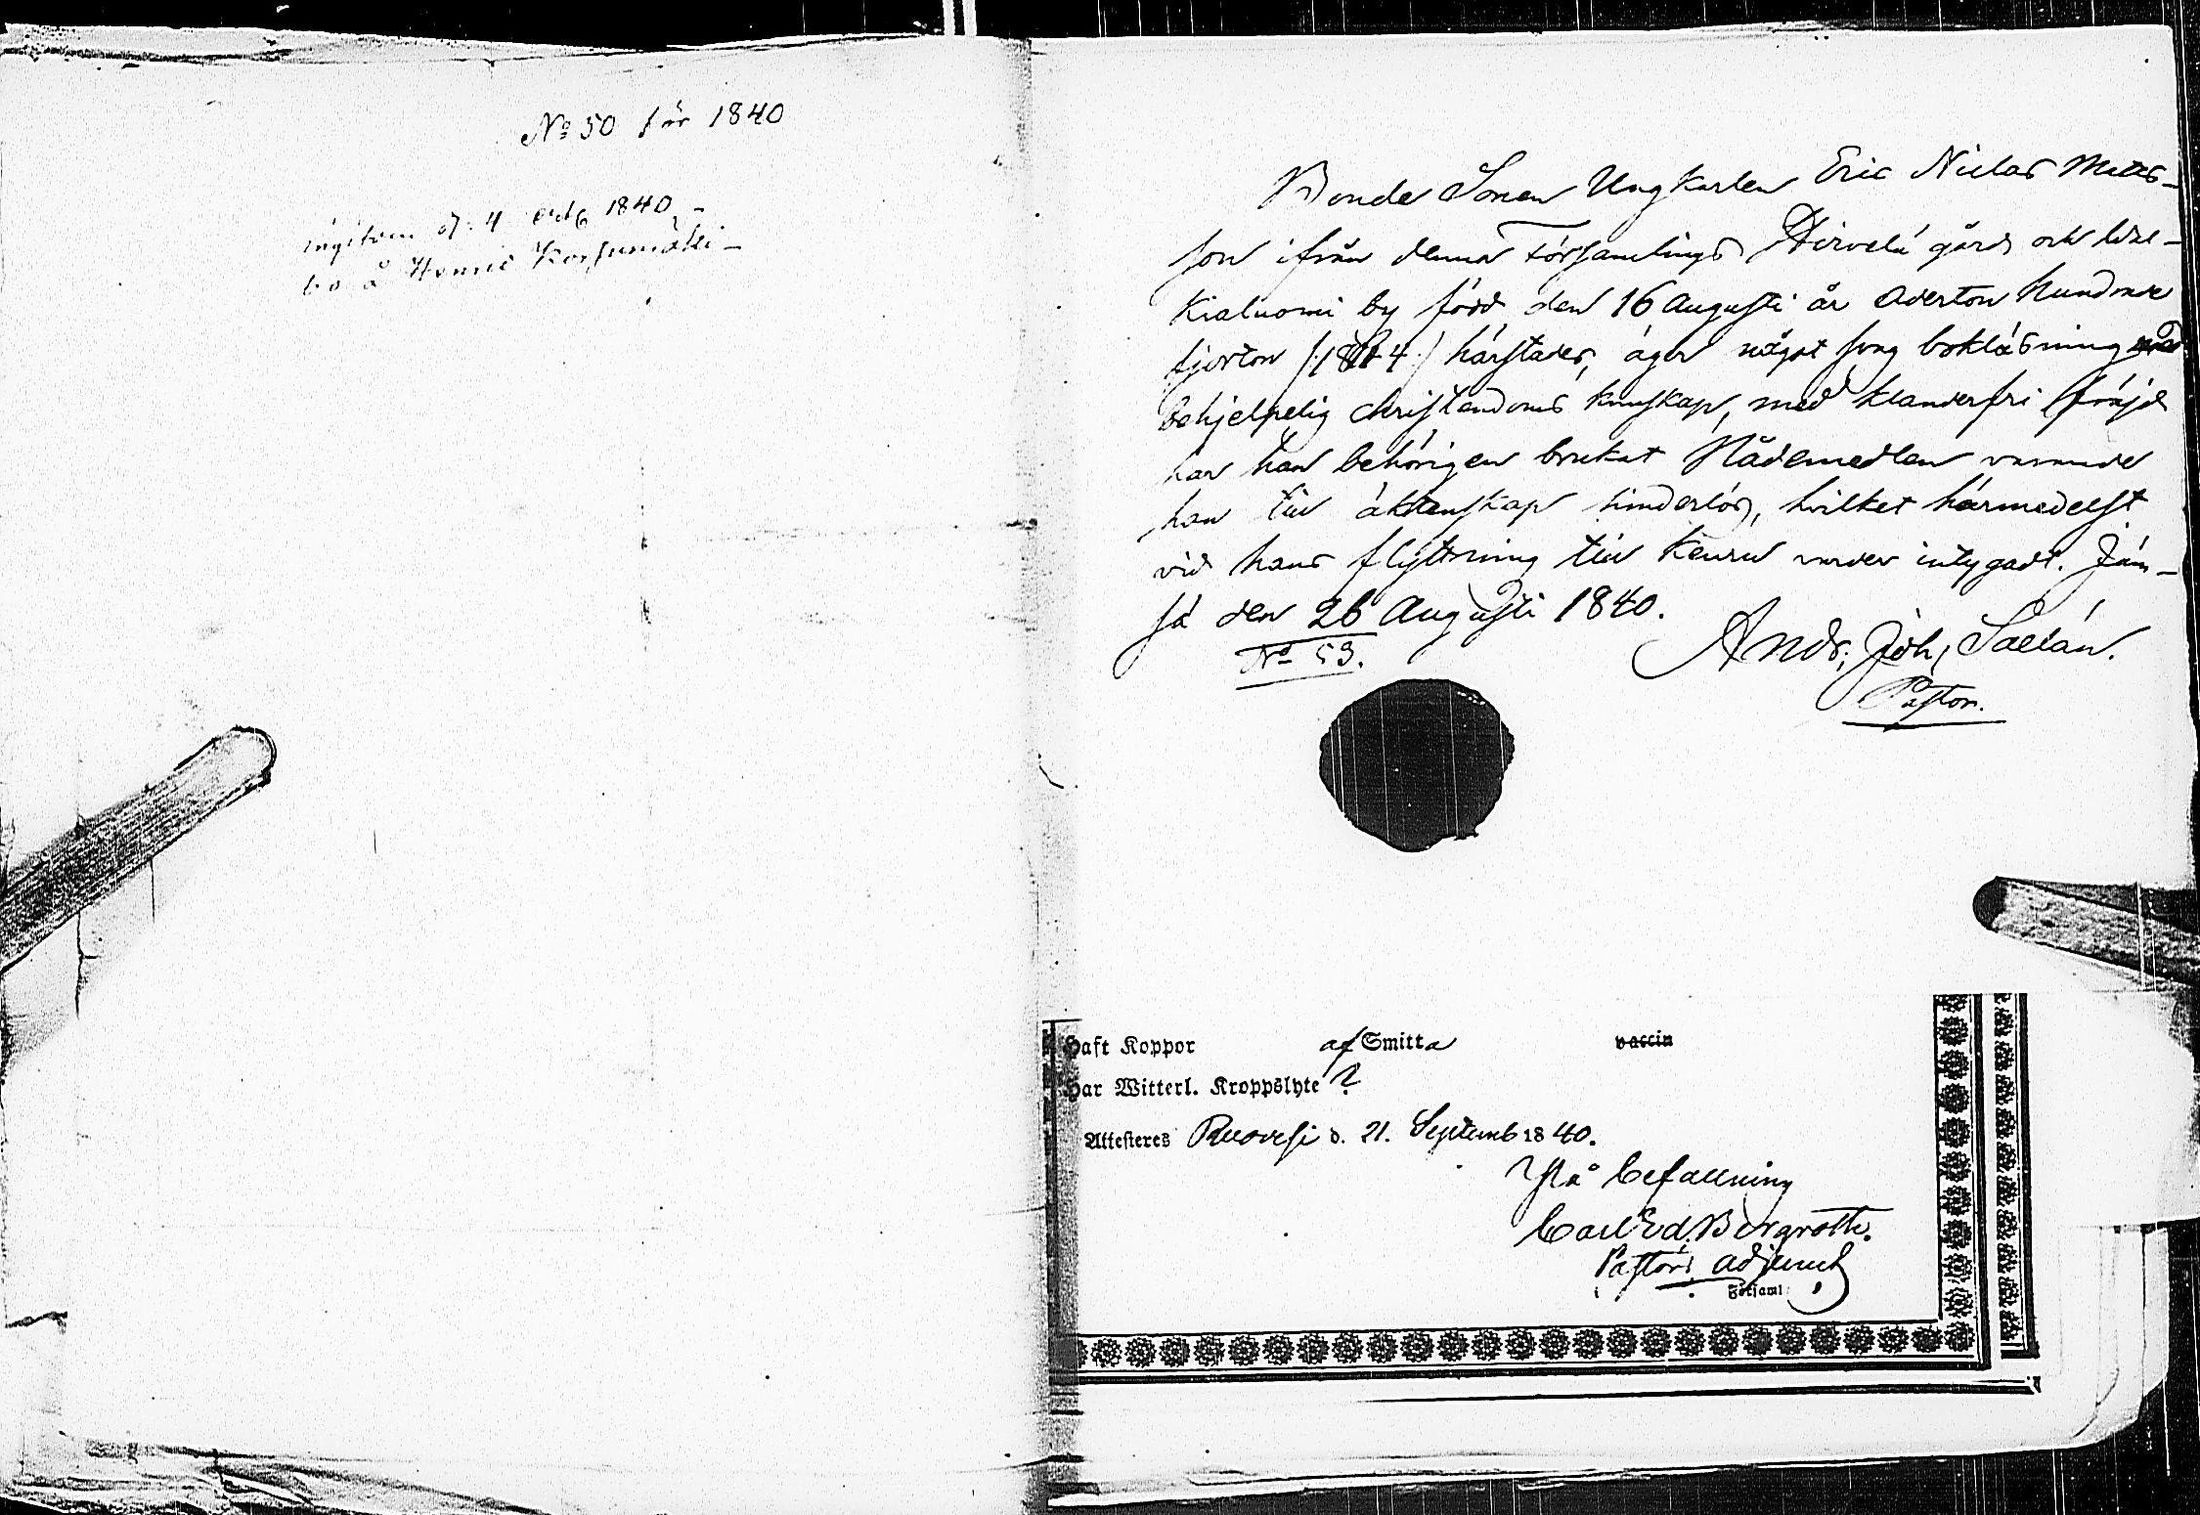 No 50 för 1840
ingifven d. 4 octb 1840 –
bo å Henric Korsumäki –
Bonde Sonen Ungkarlen Eric Niclas Matts-
son ifrån denna församlings Hirvelä gård och
Kialuomi by född den 16 Augusti år Aderton hundrade
fjorton /:1814:/ härstädes, äger något svag bokläsning
behjelpelig Christendoms kunskap, med klanderfri fräjd
har han behörigen brukat Nådemedlen varande
han till äktenskap hinderlös, hvilket härmedelst
vid hans flyttning till Keuru varder intygadt. Jäm-
sä den 26 Augusti 1840.
No 53.
Andr. Joh. Saelán.
Pastor.
Haft Koppor af Smitta vaccin
Har Witterl. Kroppslyte ?
Attesteres Ruovesi d. 21. Septemb 1840.
På befallning
Carl Ed. Bergroth.
Pastors adjunct
i Församl.